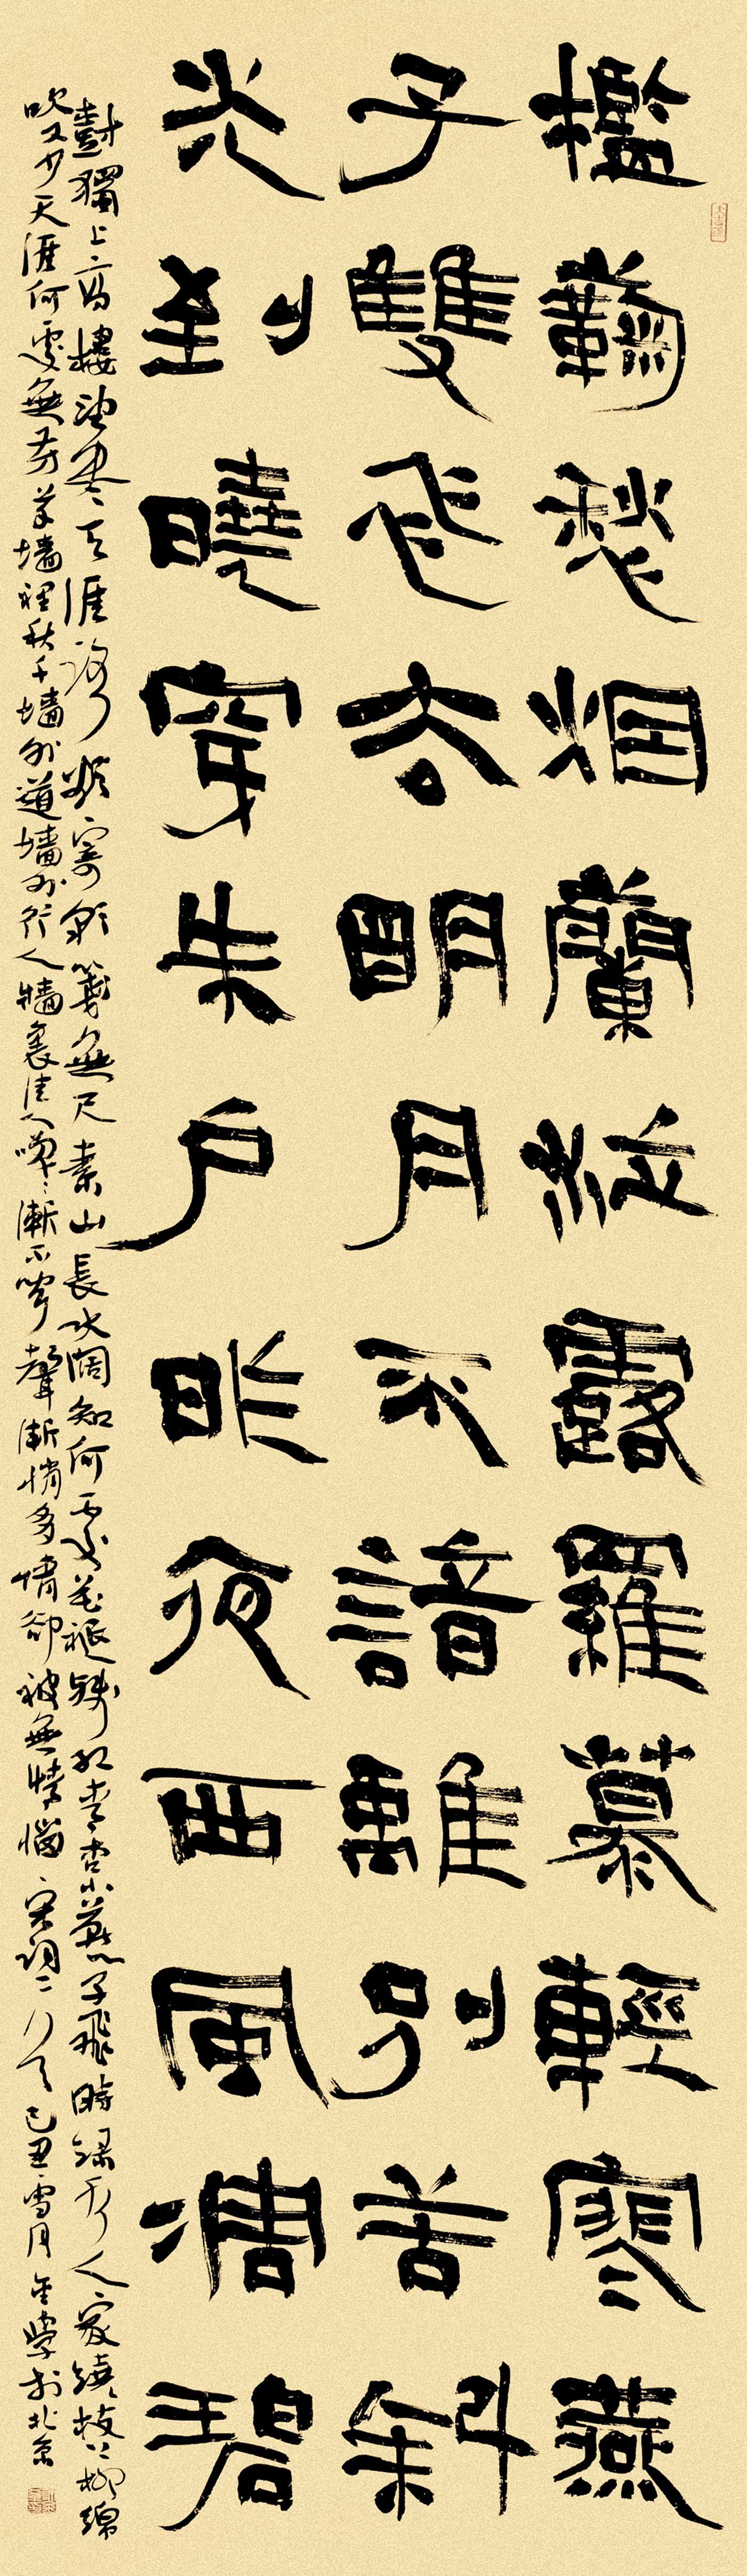 檻蘜愁烟蘭泣露羅幕輕寒燕
子雙飛去明月不諳離別苦斜
光到曉穿朱户昨夜西風凋碧
樹獨上高樓望盡天涯路欲寄彩箋無尺素山長水闊知何處花褪殘紅青杏小燕子飛時緑水人家繞枝上柳綿
吹又少天涯何處無芳草墻裡秋千墻外道墻外行人墻裏佳人笑漸不聞聲漸悄多情卻被無情惱宋詞二首己丑雪月金學於北京